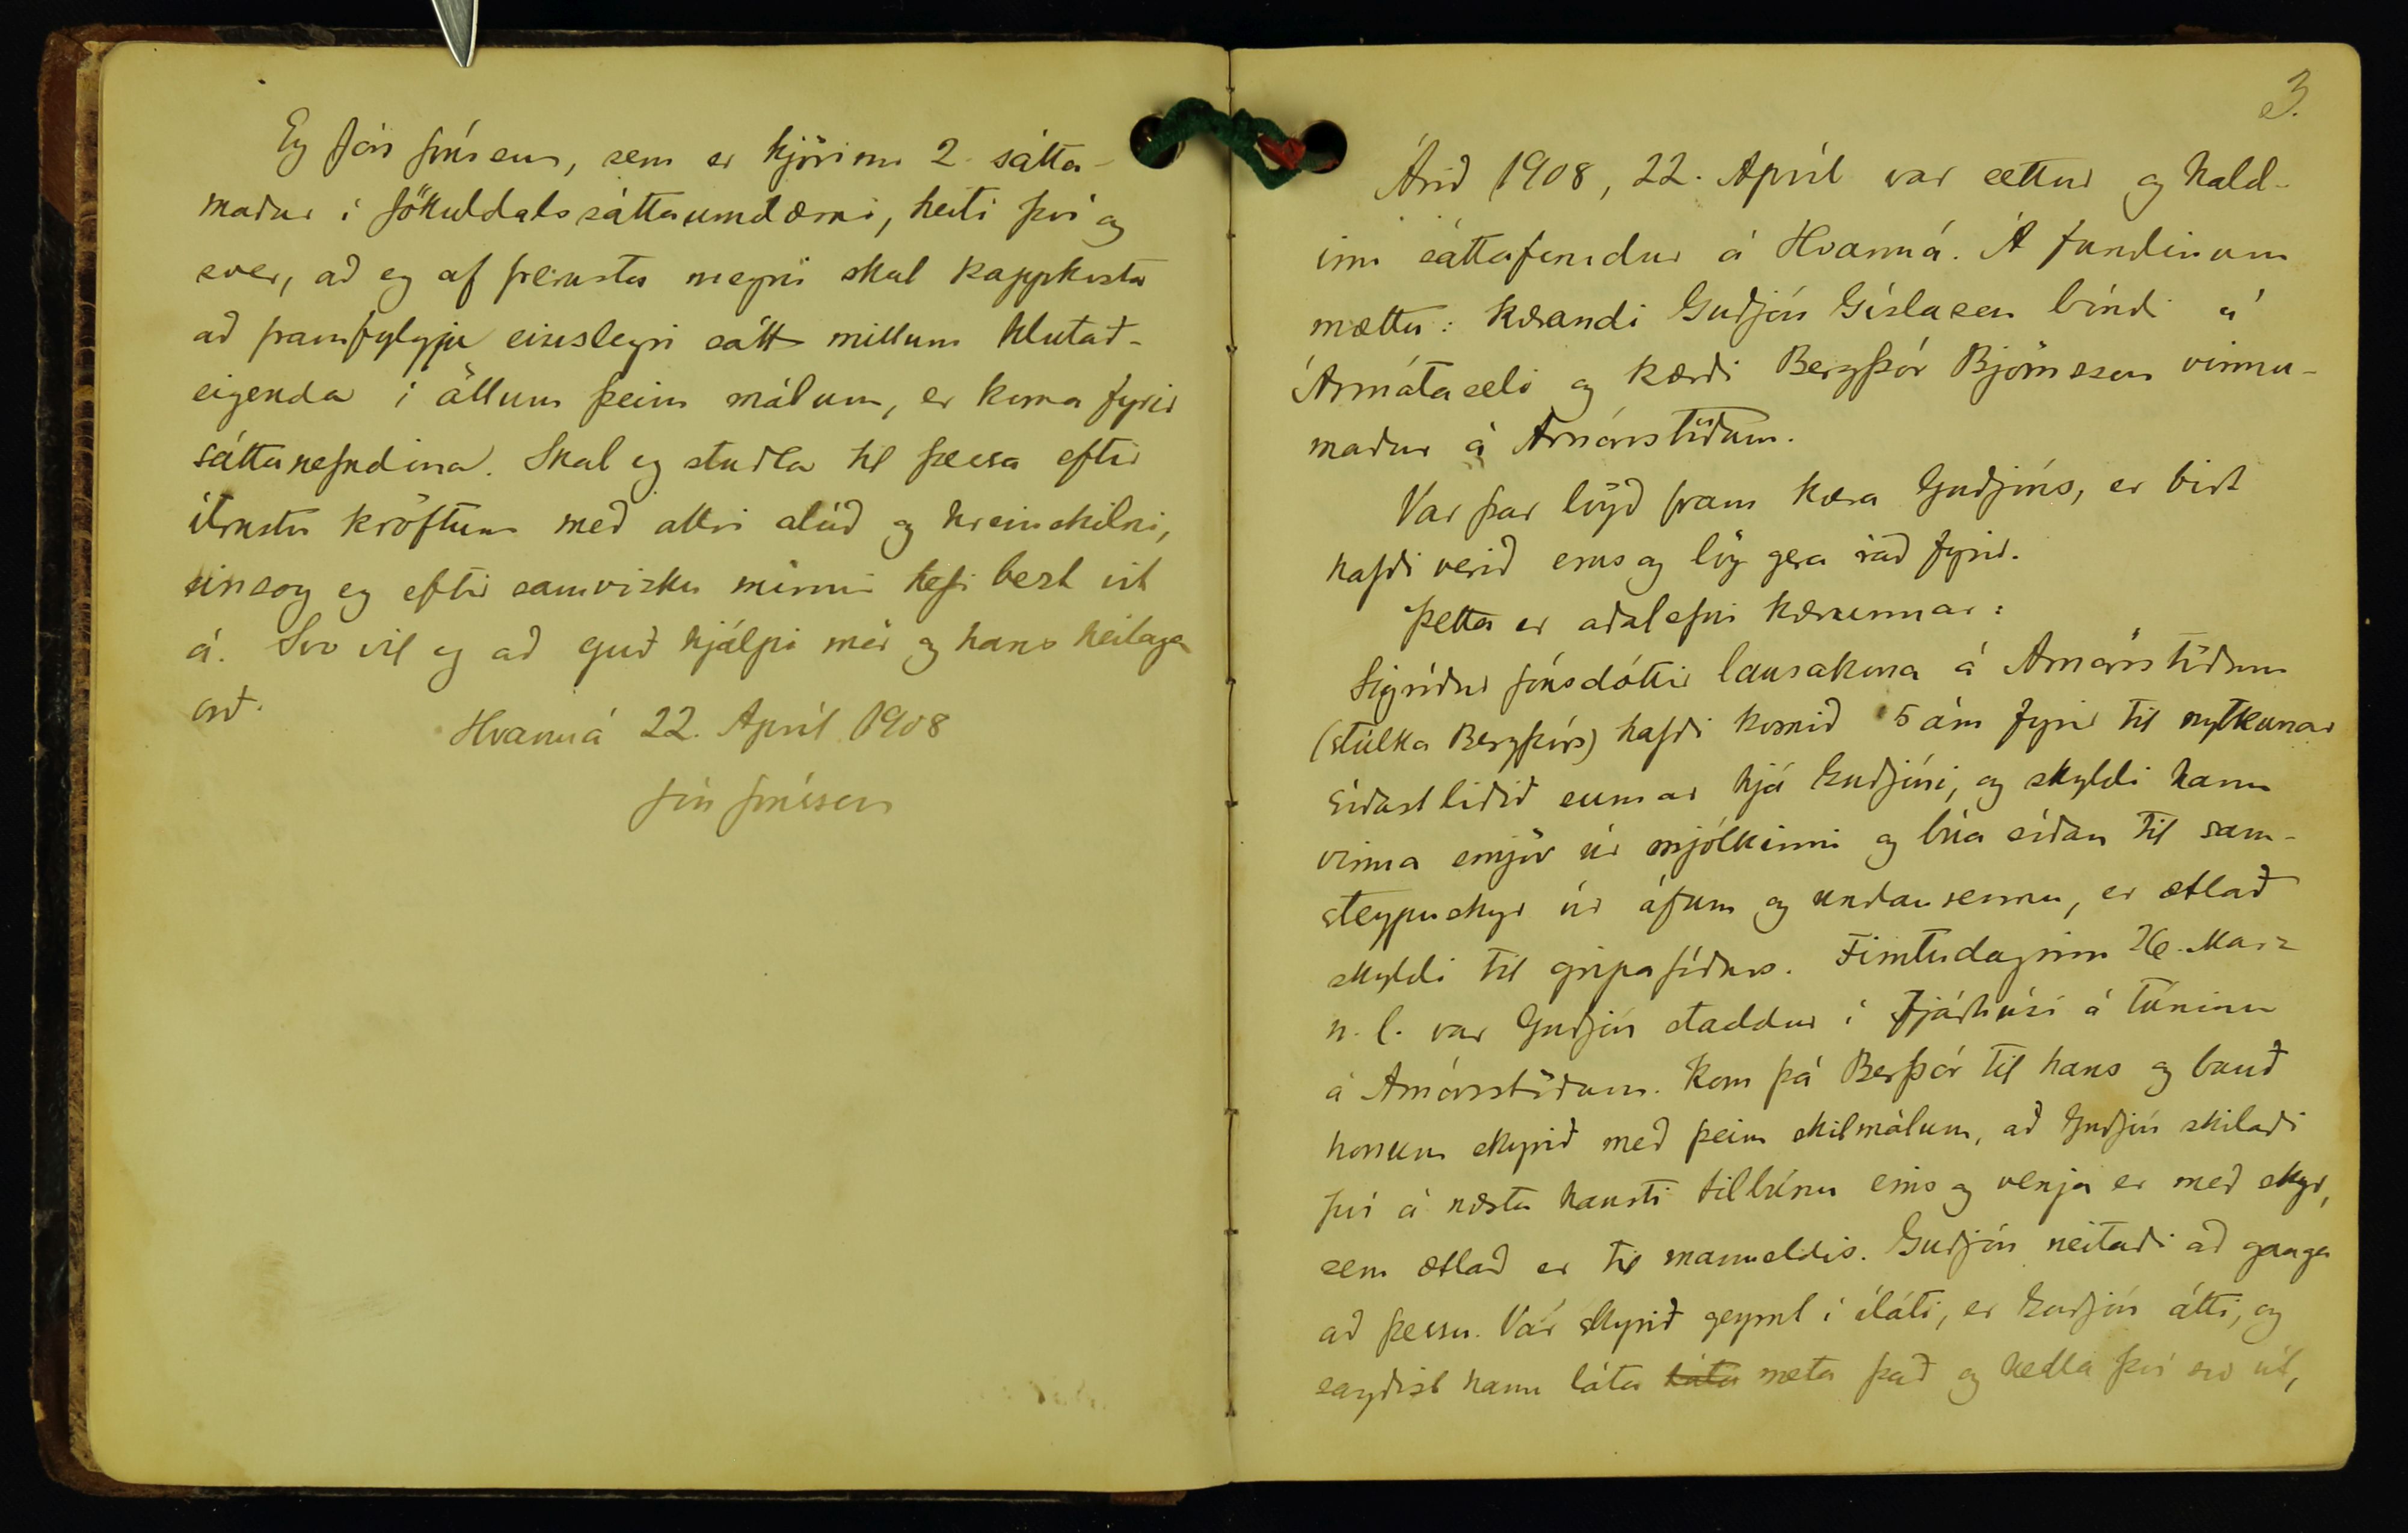 Eg Jón Jónsson, sem er kjörinn 2. sátta-
maður í Jökuldalssáttaumdæmi, heiti því og
sver, að eg af fremsta megni skal kappkosta
að framfylgja einslegri sátt millum hlutað-
eigenda í öllum þeim málum, er koma fyrir
sáttanefndina. Skal eg stuðla til þessa eftir
ítrustu kröftum með allri alúð og hreinskilni,
einsog eg eftir samvizku minni hefi bezt vit
á. Svo vil eg að guð hjálpi mér og hans heilaga
orð.
Hvanná 22. Apríl 1908
Jón Jónsson
3.
Árið 1908, 22. Apríl var settur og hald-
inn sáttafundur á Hvanná. Á fundinum
mættu: kærandi Guðjón Gíslason bóndi á
Ármótaseli og kærði Bergþór Björnsson vinnu-
maður á Arnórsstöðum.
Var þar lögð fram kæra Guðjóns, er birt
hafði verið eins og lög gera ráð fyrir.
Þetta er aðalefni kærunnar:
Sigríður Jónsdóttir lausakona á Arnórsstöðum
(stúlka Bergþórs) hafði komið 5 ám fyrir til nytkunar
síðastliðið sumar hjá Guðjóni, og skyldi hann
vinna smjör úr mjólkinni og búa síðan til sam-
steypuskyr úr áfum og undanrennu, er ætlað
skyldi til gripafóðurs. Fimtudaginn 26. Marz
n. l. var Guðjón staddur í fjárhúsi á túninu
á Arnórsstöðum. Kom þá Berþór til hans og bauð
honum skyrið með þeim skilmálum, að Guðjón skilaði
því á næsta hausti tilbúnu eins og venja er með skyr,
sem ætlað er til manneldis. Guðjón neitaði að ganga
að þessu. Var skyrið geymt í íláti, er Guðjón átti, og
sagðist hann láta láta meta það og hella því svo út,